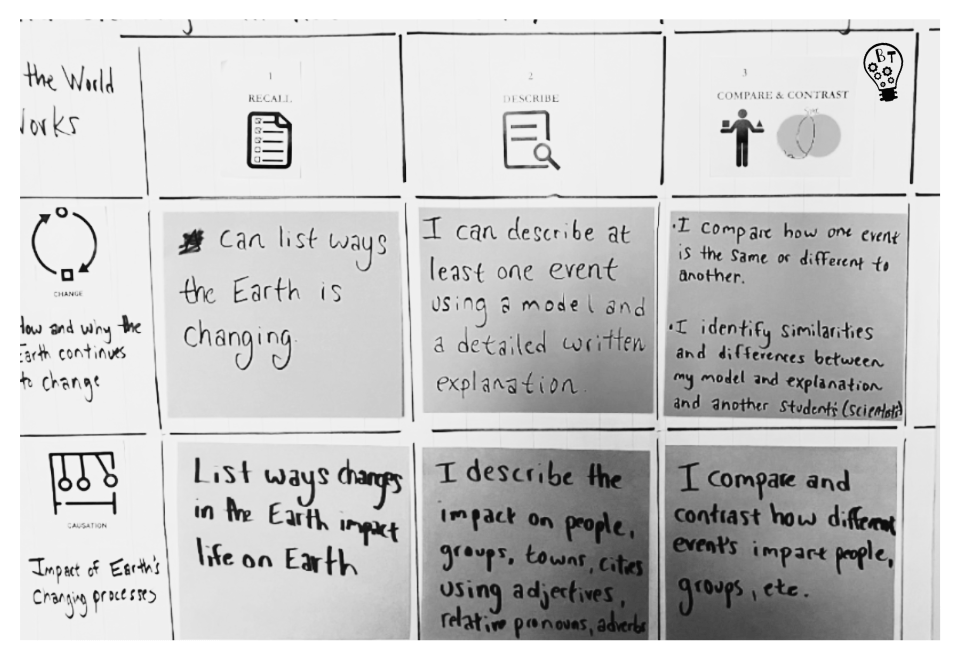 the World
Works
1
RECALL
2
DESCRIBE
3
COMPARE & CONTRAST
BT
CHANGE
How and why the
Earth continues
to change
Can list ways
the Earth is
changing.
I can describe at
least one event
using a model and
a detailed written
explanation.
• I compare how one event
is the same or different to
another.
• I identify similarities
and differences between
my model and explanation
and another students' (scientists)
CAUSATION
Impact of Earth's
Changing processes
List ways changes
in the Earth impact
life on Earth
I describe the
impact on people,
groups, towns, cities
using adjectives,
relative pronouns, adverbs
I compare and
contrast how different
event's impact people,
groups, etc.